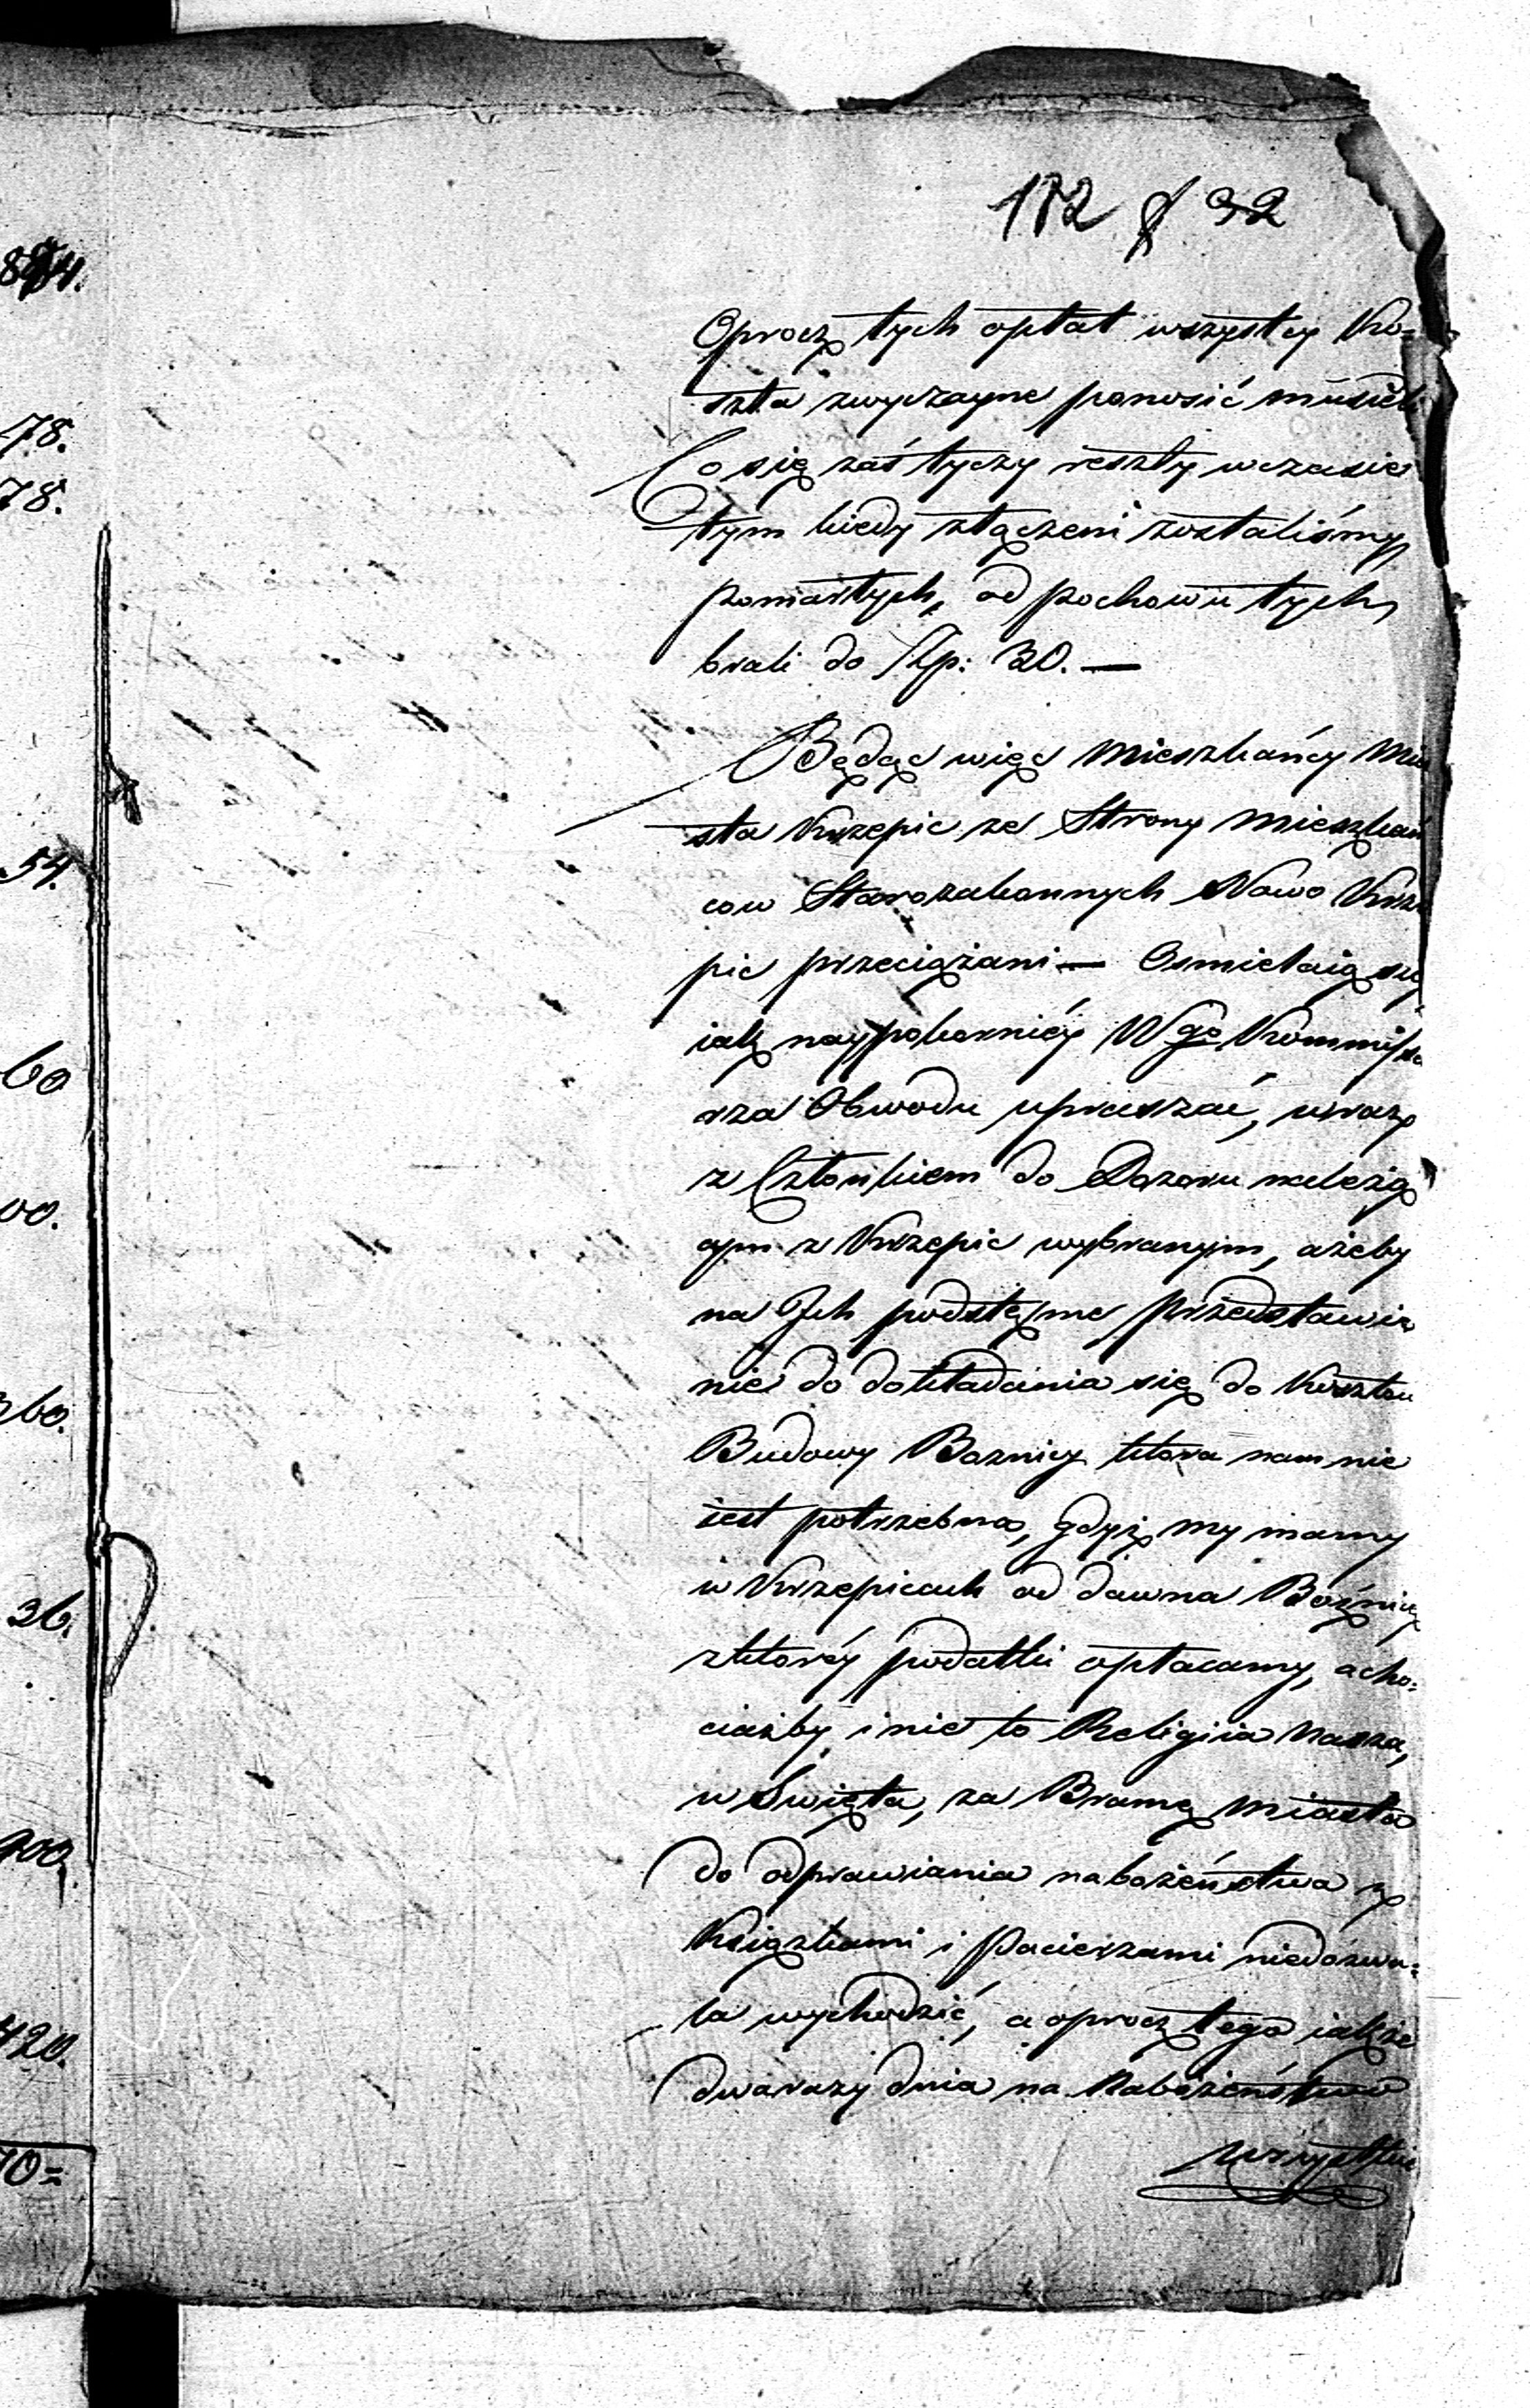 894.
78.
78.
54.
60
00.
360.
36.
900.
420.
70=
182 32
Oprocz tych opłat wszystcy Ko=
szta zwyczayne ponosić musieli
Co się zaś tyczy reszty w czasie
tym kiedy złączeni zostaliśmy
pomarłych, od pochowu tych
brali do Złp: 30. —
Będąc więc Mieszkańcy Mia
sta Krzepic ze Strony Mieszkań
cow Starozakonnych Nowo Krze
pic przeciążani — Osmielaią się
iak naypokorniéy Wgo Kommissa
rza Obwodu upraszać, wraz
z Członkiem do Dozoru należią
cym z Krzepic wybranym, ażeby
na Jch podstępne przedstawie
nie do dokładania się do Kosztow
Budowy Boznicy ktora nam nie
iest potrzebna, gdyż my mamy
w Krzepicach od dawna Bożnicę
z ktoréy podatki opłacamy, a cho=
ciażby i nie to Religiia Nasza,
w Święta, za Bramę Miasta
do odprawiania nabożeństwa z
Książkami i Pacierzami niedozwa=
la wychodzić, a oprocz tego iakże
dwa razy dnia na Nabożeństwo
wszystkie